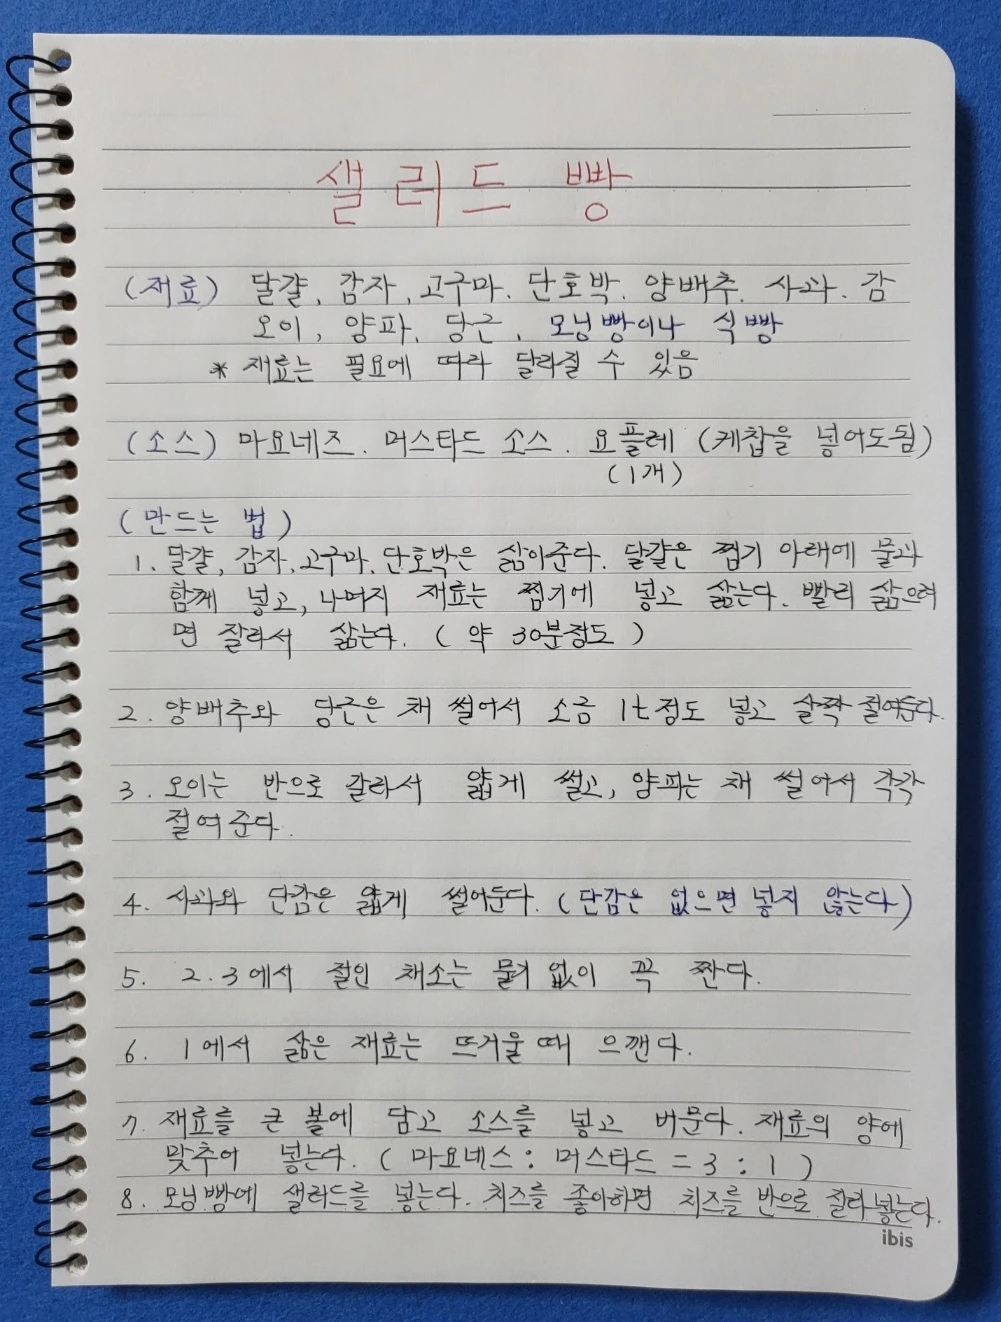 샐러드 빵
(재료) 달걀, 감자, 고구마. 단호박. 양배추. 사과. 감
오이, 양파, 당근, 모닝빵이나 식빵
* 재료는 필요에 따라 달라질 수 있음
(소스) 마요네즈. 머스타드 소스. 요플레 (케찹을 넣어도됨)
(1개)
(만드는 법)
1. 달걀, 감자, 고구마. 단호박은 삶아준다. 달걀은 찜기 아래에 물과
함께 넣고, 나머지 재료는 찜기에 넣고 삶는다. 빨리 삶으려
면 잘라서 삶는다. (약 30분정도)
2. 양배추와 당근은 채 썰어서 소금 1t정도 넣고 살짝 절여둔다.
3. 오이는 반으로 갈라서 얇게 썰고, 양파는 채 썰어서 각각
절여준다.
4. 사과와 단감은 얇게 썰어둔다. (단감은 없으면 넣지 않는다)
5. 2.3에서 절인 채소는 물기없이 꼭 짠다.
6. 1에서 삶은 재료는 뜨거울때 으깬다.
7. 재료를 큰 볼에 담고 소스를 넣고 버문다. 재료의 양에
맞추어 넣는다. (마요네스 : 머스타드 = 3 : 1)
8. 모닝빵에 샐러드를 넣는다. 치즈를 좋아하면 치즈를 반으로 잘라 넣는다.
ibis